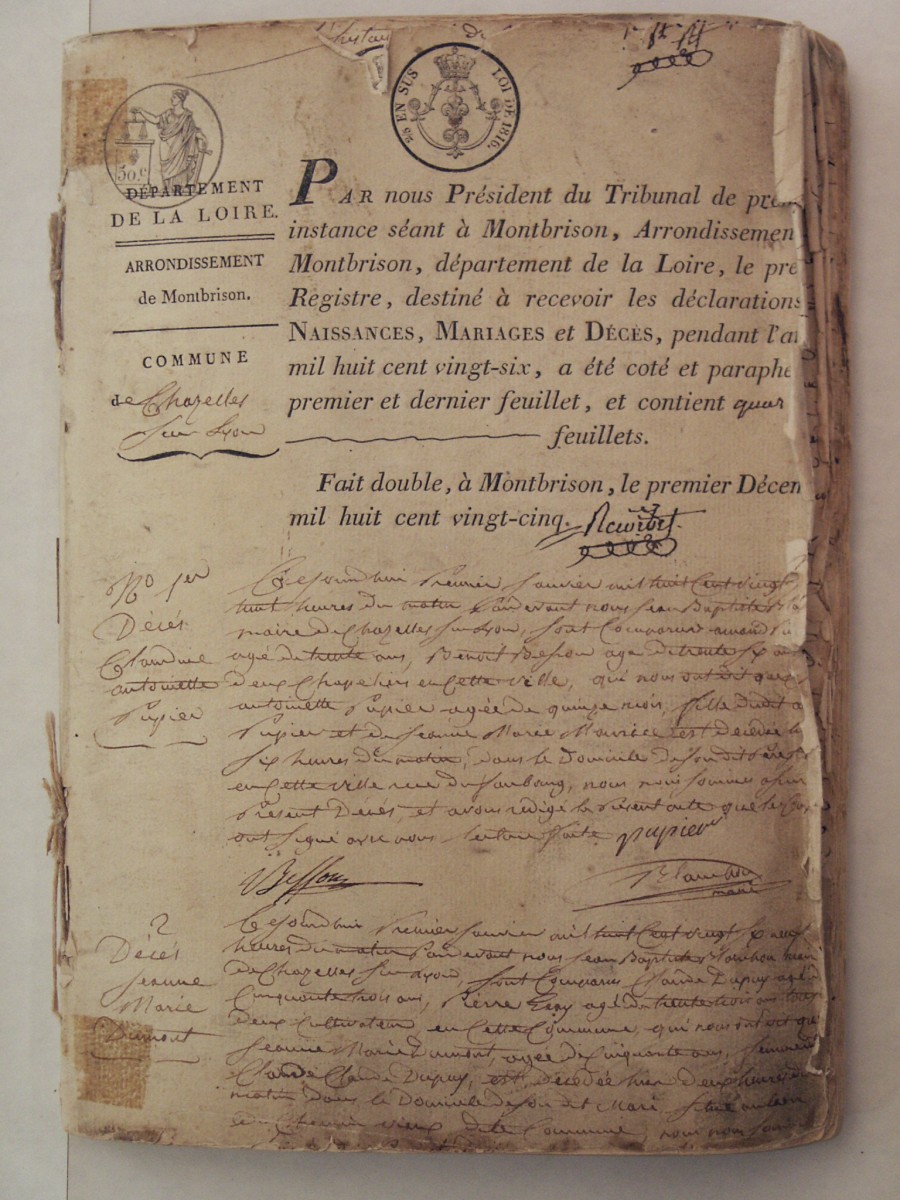 25 EN SUS LOI DE 1816.
50.c
DÉPARTEMENT
DE LA LOIRE.
ARRONDISSEMENT
de Montbrison.
COMMUNE
de Chazelles
sur Lyon
PAR nous Président du Tribunal de
instance séant à Montbrison, Arrondissemen
Montbrison, département de la Loire, le pre
Registre, destiné à recevoir les déclarations
NAISSANCES, MARIAGES et DÉCÈS, pendant l'a
mil huit cent vingt-six, a été coté et paraphé
premier et dernier feuillet, et contient quar
feuillets.
Fait double, à Montbrison, le premier Décem
mil huit cent vingt-cinq.
No 1er
Décès
Claudine
antoinette
Pupier
Cejourdhui Premier Janvier mil huit Cent vingt
huit heures du matin Pardevant nous Jean Baptiste
maire de Chazelles sur Lyon, sont Comparus
agé de trente ans, Benoit Besson agé de trente six
deux Chapeliers en Cette ville, qui nous ont dit que
antoinette Pupier agée de quinze mois, fille dudit
Pupier et de Jeanne Marie est Décédée
six heures du matin, dans le Domicile de son dit Père
en Cette ville rue du faubourg, nous nous sommes
Présent Décès, et avons rédigé le Présent acte que les
ont signé avec nous lecture faite pupier
Besson
maire
2
Décès
Jeanne
Marie
Dumont
Cejourdhui Premier Janvier mil huit Cent vingt six
heures du matin Pardevant nous Jean Baptiste
de Chazelles sur Lyon, sont Comparus Claude Dupuy agé
Cinquante trois ans, Pierre agé de trente trois ans tous
deux Cultivateur en Cette Commune, qui nous ont dit que
Jeanne Marie Dumont, agée de Cinquante ans,
Claude Dupuy, est Décédée hier Deux heures du
matin Dans le Domicile de son dit Mari
Commune, nous nous